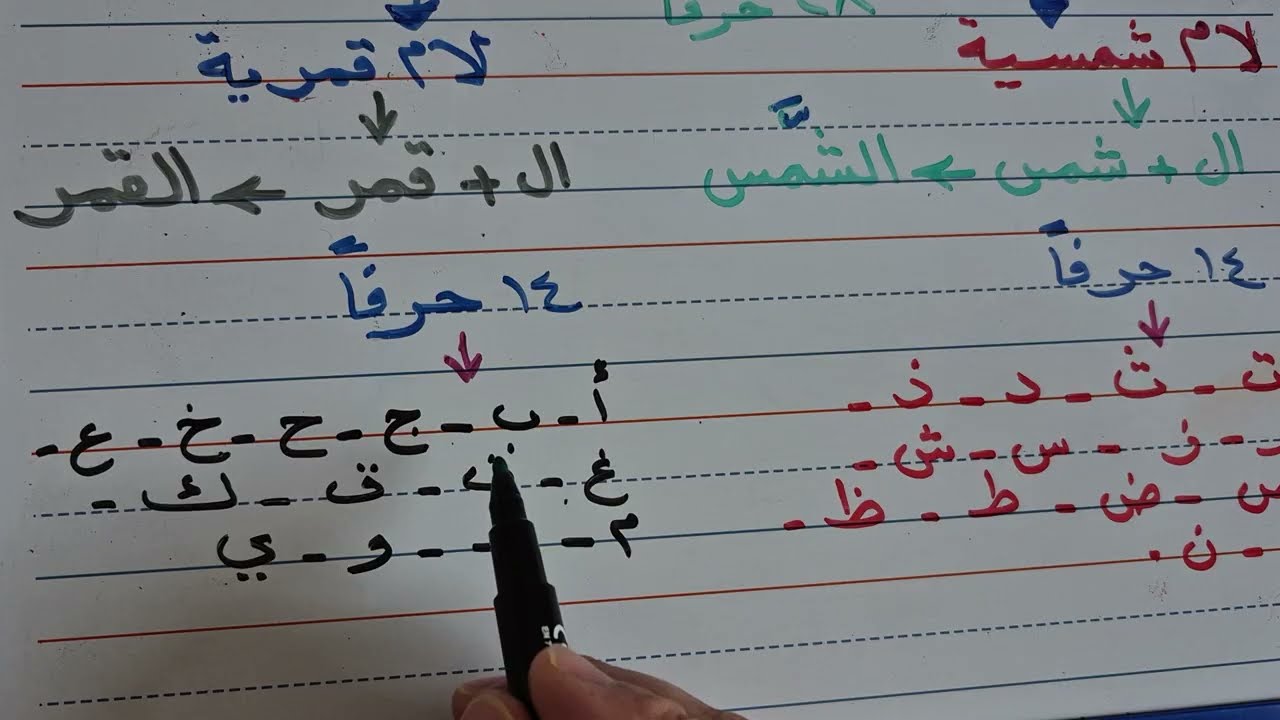 ٢٨ حرفاً
لام شمسية
لام قمرية
ال + شمس ← الشَّمس
ال + قمر ← القمر
١٤ حرفاً
١٤ حرفاً
ت - ث - د - ذ -
ز - س - ش -
ض - ط - ظ -
- ن .
أ - ب - ج - ح - خ - ع -
غ - ف - ق - ك -
م - - و - ي